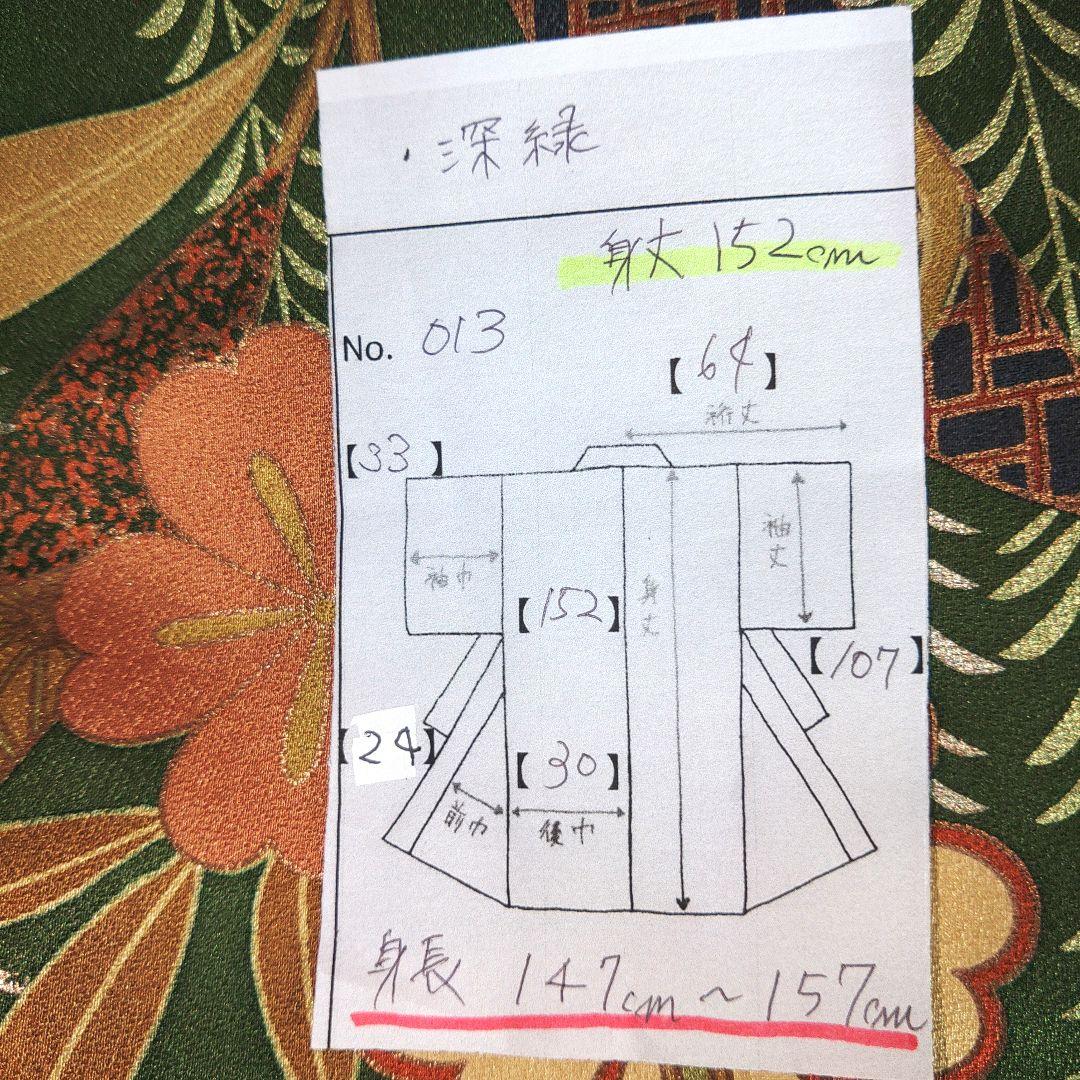 ・深緑
身丈 152cm
No. 013
【64】
裄丈
【33】
袖巾
袖丈
【152】
身丈
【107】
【24】
【30】
前巾
後巾
身長 147cm～157cm